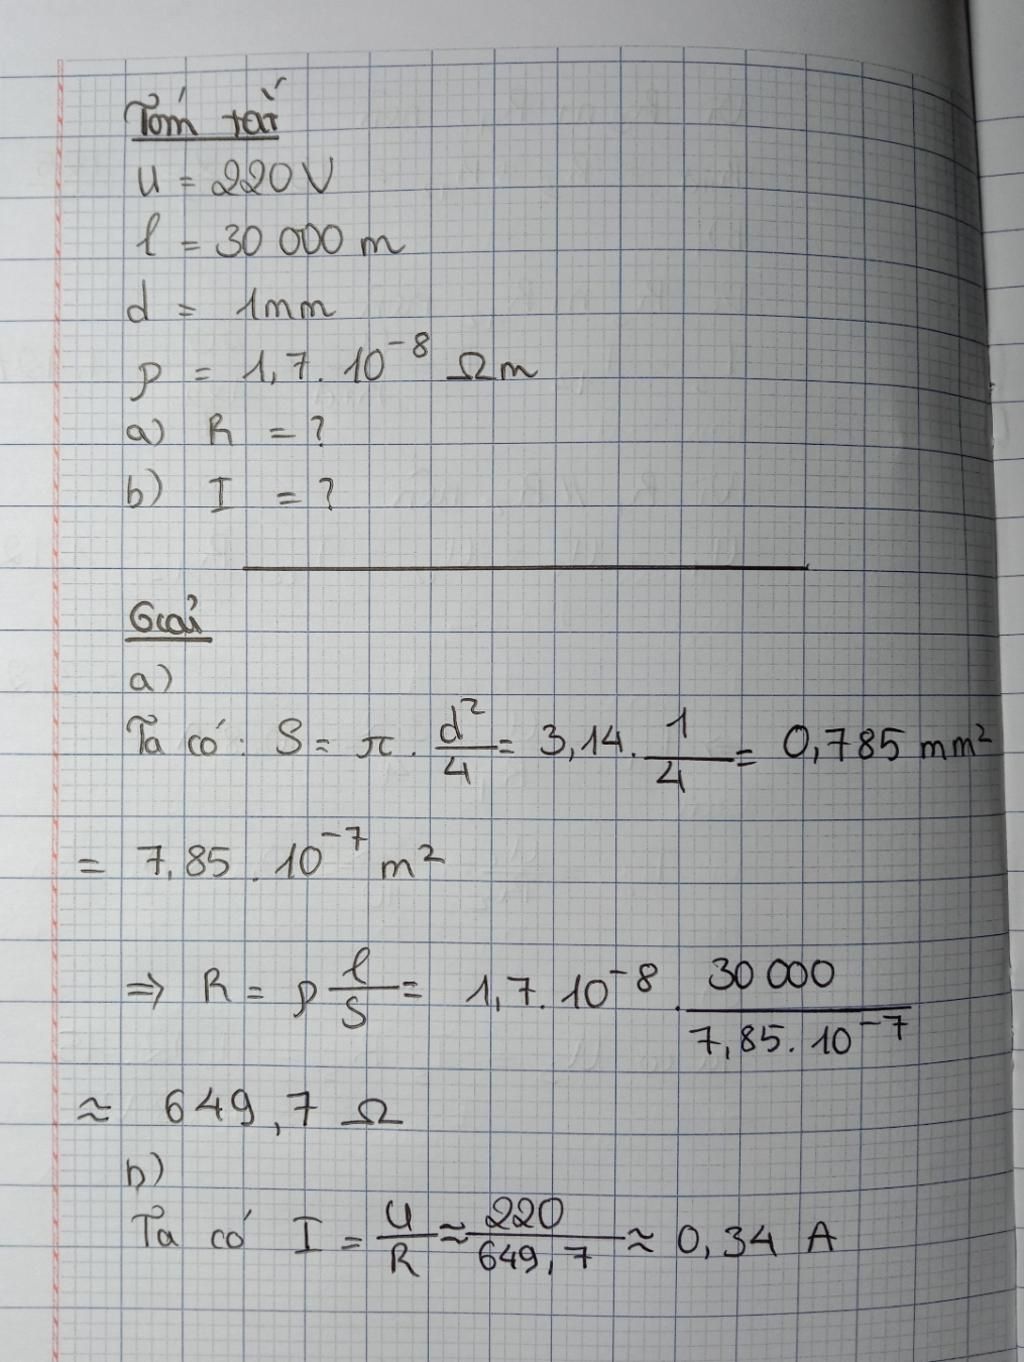 Tóm tắt
U = 220V
l = 30 000 m
d = 1mm
ρ = 1,7. 10^-8 Ωm
a) R = ?
b) I = ?
Giải
a)
Ta có: S = π . d²/4 = 3,14. 1/4 = 0,785 mm²
= 7,85 . 10^-7 m²
=> R = ρ l/S = 1,7. 10^-8 . 30 000/7,85. 10^-7
≈ 649,7 Ω
b)
Ta có I = U/R ≈ 220/649,7 ≈ 0,34 A